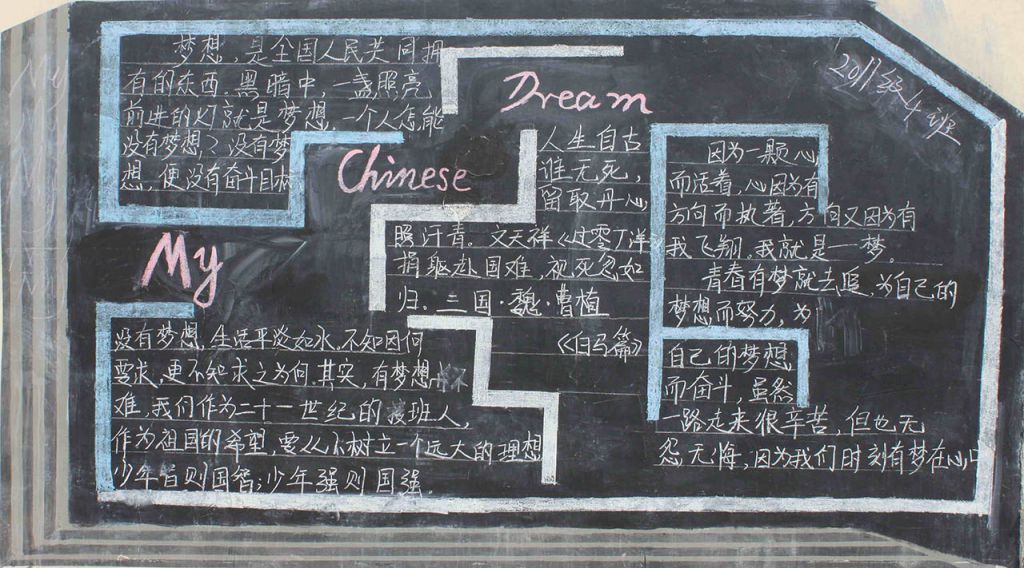 梦想,是全国人民共同拥
有的东西.黑暗中,一盏照亮
前进的灯就是梦想.一个人怎能
没有梦想?没有梦
想,便没有奋斗目标
My
Chinese
Dream
2011级4班
人生自古
谁无死,
留取丹心
照汗青。文天祥《过零丁洋》
捐躯赴国难,视死忽如
归.三国·魏·曹植
《白马篇》
没有梦想.生活平淡如水,不知因何
要求,更不知求之为何.其实,有梦想
难,我们作为二十一世纪的接班人,
作为祖国的希望,要从小树立一个远大的理想
少年智则国智;少年强则国强.
因为一颗心
而活着,心因为有
方向而执著,方向又因为有
我飞翔.我就是一梦.
青春有梦就去追,为自己的
梦想而努力,为
自己的梦想
而奋斗,虽然
一路走来很辛苦,但也无
怨无悔,因为我们时刻有梦在心中